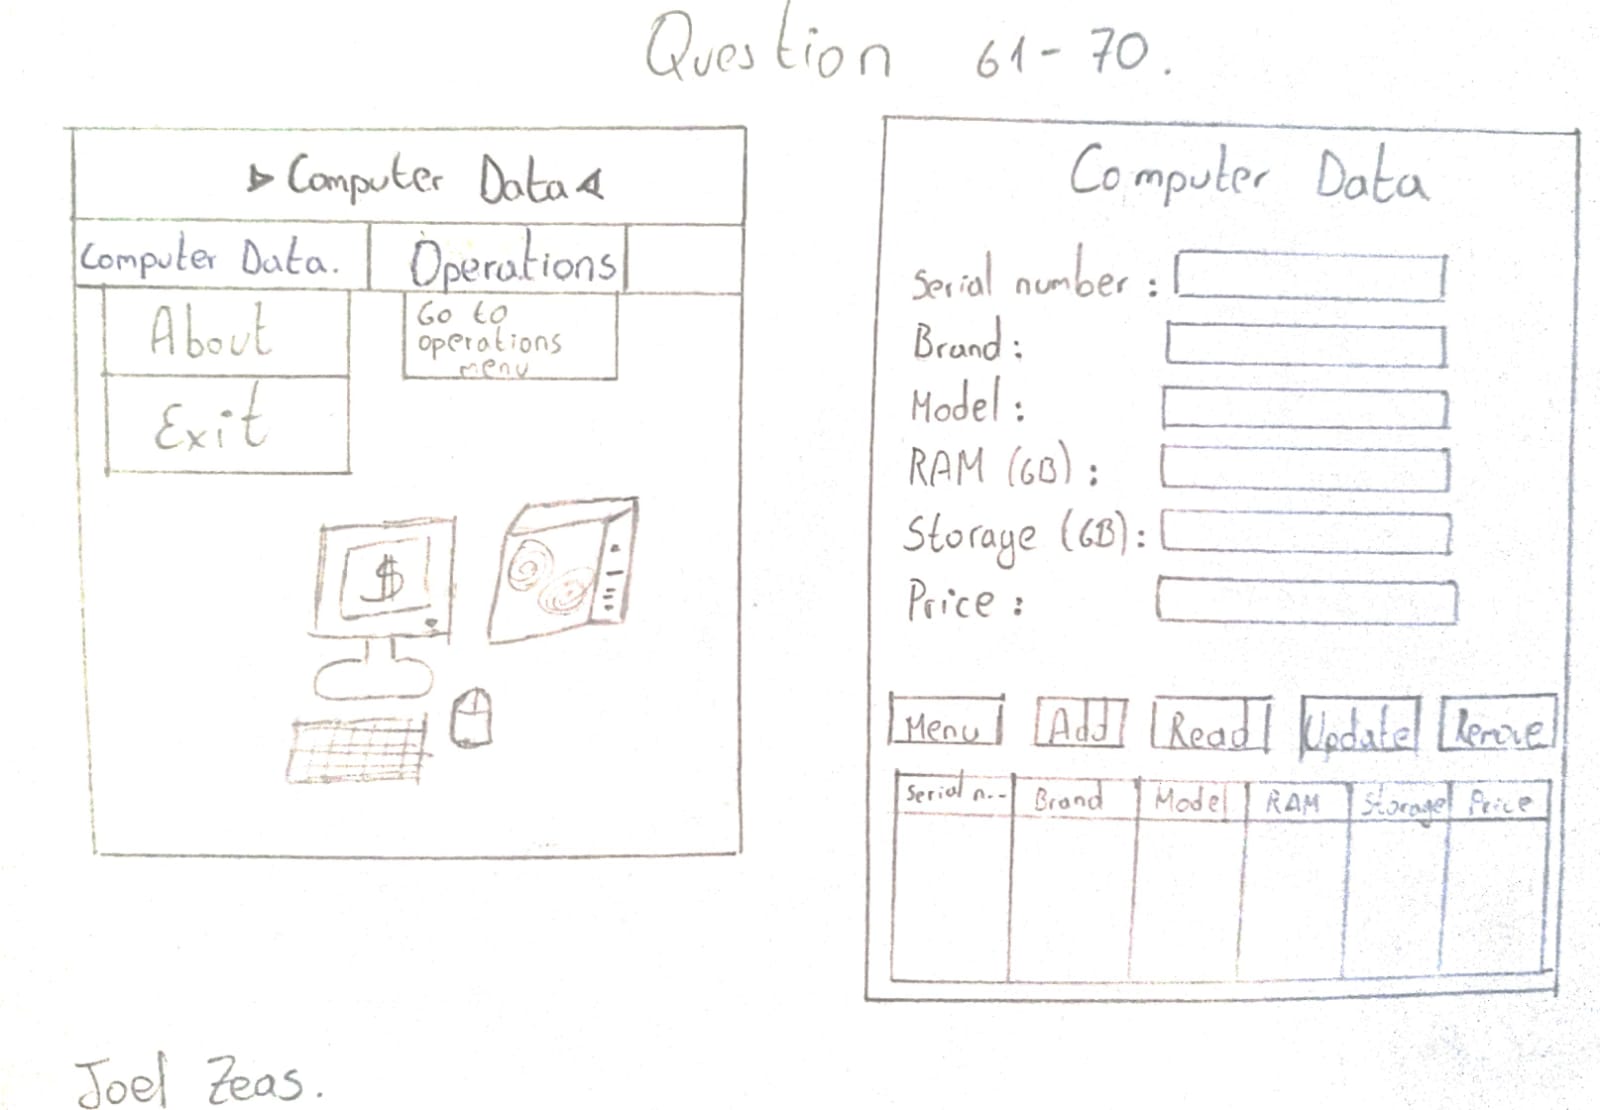 Question 61-70.
Computer Data
Computer Data. Operations
About
Exit
Go to
operations
menu
$
Computer Data
Serial number :
Brand :
Model :
RAM (GB) :
Storage (GB) :
Price :
Menu Add Read Update Remove
Serial n... Brand Model RAM Storage Price
Joel Zeas.